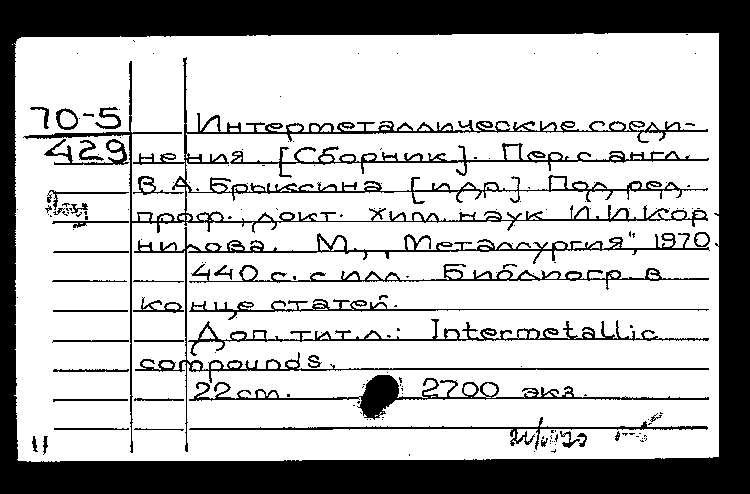 70-5
429
Интерметаллические соеди-
нения. [Сборник]. Пер. с англ.
В. А. Брыксина [и др.]. Под ред.
проф., докт. хим. наук И. И. Кор-
нилова. М., „Металлургия", 1970.
440 с. с илл. Библиогр. в
конце статей.
Доп. тит. л.: Intermetallic
compounds.
22 см. 2700 экз.
11